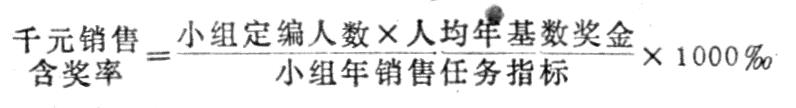 千元销售含奖率 = 小组定编人数×人均年基数奖金 / 小组年销售任务指标 × 1000‰